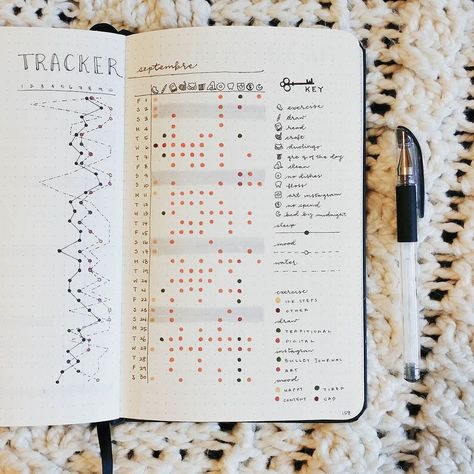 TRACKER
1 2 3 4 5 6 7 8 9 10
septembre
KEY
F 1
S 2
S 3
M 4
T 5
W 6
H 7
F 8
S 9
S 10
M 11
T 12
W 13
H 14
F 15
S 16
S 17
M 18
T 19
W 20
H 21
F 22
S 23
S 24
M 25
T 26
W 27
H 28
F 29
S 30
exercise
draw
read
craft
duolingo
gre q of the day
clean
no dishes
floss
art instagram
no spend
bed by midnight
sleep
mood
water
exercise
10K STEPS
OTHER
draw
TRADITIONAL
DIGITAL
instagram
BULLET JOURNAL
ART
mood
HAPPY TIRED
CONTENT SAD